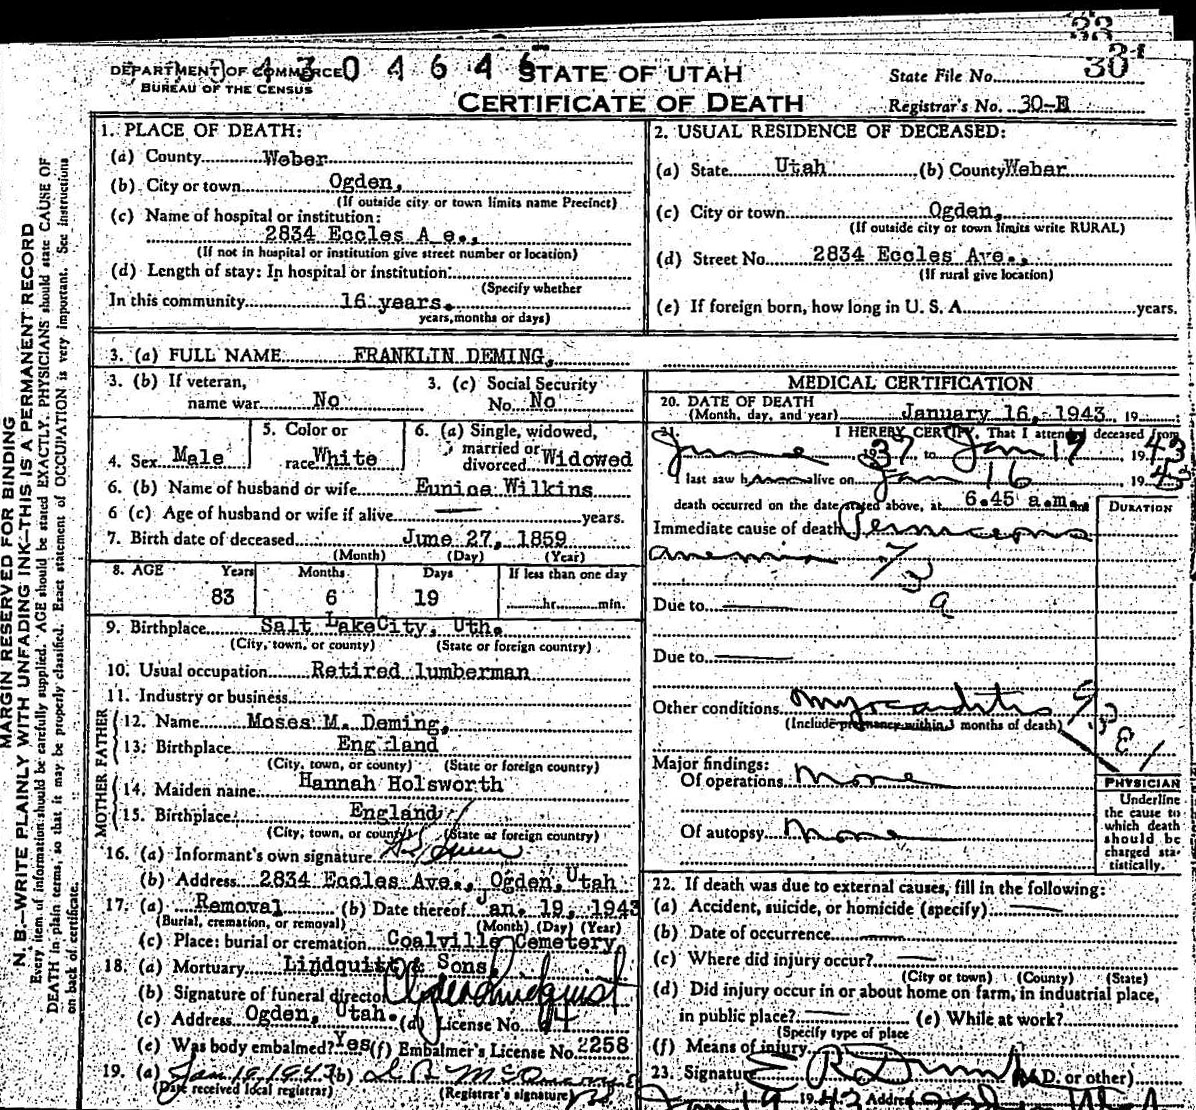 33
DEPARTMENT OF COMMERCE 0 4 3 0 4 6 4 6 STATE OF UTAH State File No. 30
BUREAU OF THE CENSUS
CERTIFICATE OF DEATH Registrar's No. 30-B
MARGIN RESERVED FOR BINDING
N. B.—WRITE PLAINLY WITH UNFADING INK—THIS IS A PERMANENT RECORD
Every item of information should be carefully supplied. AGE should be stated EXACTLY. PHYSICIANS should state CAUSE OF
DEATH in plain terms, so that it may be properly classified. Exact statement of OCCUPATION is very important. See instructions
on back of certificate.
1. PLACE OF DEATH:
(a) County Weber
(b) City or town Ogden,
(If outside city or town limits name Precinct)
(c) Name of hospital or institution:
2834 Eccles A e.,
(If not in hospital or institution give street number or location)
(d) Length of stay: In hospital or institution
(Specify whether
In this community 16 years.
years, months or days)
2. USUAL RESIDENCE OF DECEASED:
(a) State Utah (b) County Weber
(c) City or town Ogden,
(If outside city or town limits write RURAL)
(d) Street No. 2834 Eccles Ave.,
(If rural give location)
(e) If foreign born, how long in U. S. A. years.
3. (a) FULL NAME FRANKLIN DEMING,
3. (b) If veteran, 3. (c) Social Security
name war No No. No
4. Sex Male 5. Color or race White 6. (a) Single, widowed, married or divorced Widowed
6. (b) Name of husband or wife Eunice Wilkins
6 (c) Age of husband or wife if alive — years.
7. Birth date of deceased June 27, 1859
(Month) (Day) (Year)
8. AGE Years Months Days If less than one day
83 6 19 hr. min.
9. Birthplace Salt LakeCity, Uth.
(City, town, or county) (State or foreign country)
10. Usual occupation Retired lumberman
11. Industry or business
FATHER
12. Name Moses M. Deming,
13. Birthplace England
(City, town, or county) (State or foreign country)
MOTHER
14. Maiden name Hannah Holsworth
15. Birthplace England
(City, town, or county) (State or foreign country)
16. (a) Informant's own signature
(b) Address 2834 Eccles Ave., Ogden, Utah
17. (a) Removal (b) Date thereof Jan. 19, 1943
(Burial, cremation, or removal) (Month) (Day) (Year)
(c) Place: burial or cremation Coalville Cemetery
18. (a) Mortuary Lindquist & Sons,
(b) Signature of funeral director Clyde Lindquist
(c) Address Ogden, Utah. (d) License No. 4
(e) Was body embalmed? Yes (f) Embalmer's License No. 2258
19. (a) Jan 18 1943 (b)
(Date received local registrar) (Registrar's signature)
MEDICAL CERTIFICATION
20. DATE OF DEATH
(Month, day, and year) January 16, 1943 19
21. I HEREBY CERTIFY, That I attended deceased from
June 1937 to Jan 17 1943
I last saw him alive on Jan 16 1943
death occurred on the date stated above, at 6.45 a.m. DURATION
Immediate cause of death Pernicious
anemia 73
a
Due to —
Due to —
Other conditions Myocarditis 93
(Include pregnancy within 3 months of death)
Major findings:
Of operations None
Of autopsy None
PHYSICIAN
Underline
the cause to
which death
should be
charged sta-
tistically.
22. If death was due to external causes, fill in the following:
(a) Accident, suicide, or homicide (specify) —
(b) Date of occurrence —
(c) Where did injury occur? —
(City or town) (County) (State)
(d) Did injury occur in or about home on farm, in industrial place,
in public place? — (e) While at work?
(Specify type of place
(f) Means of injury
23. Signature (M.D. or other)
Jan 19 1943 Address